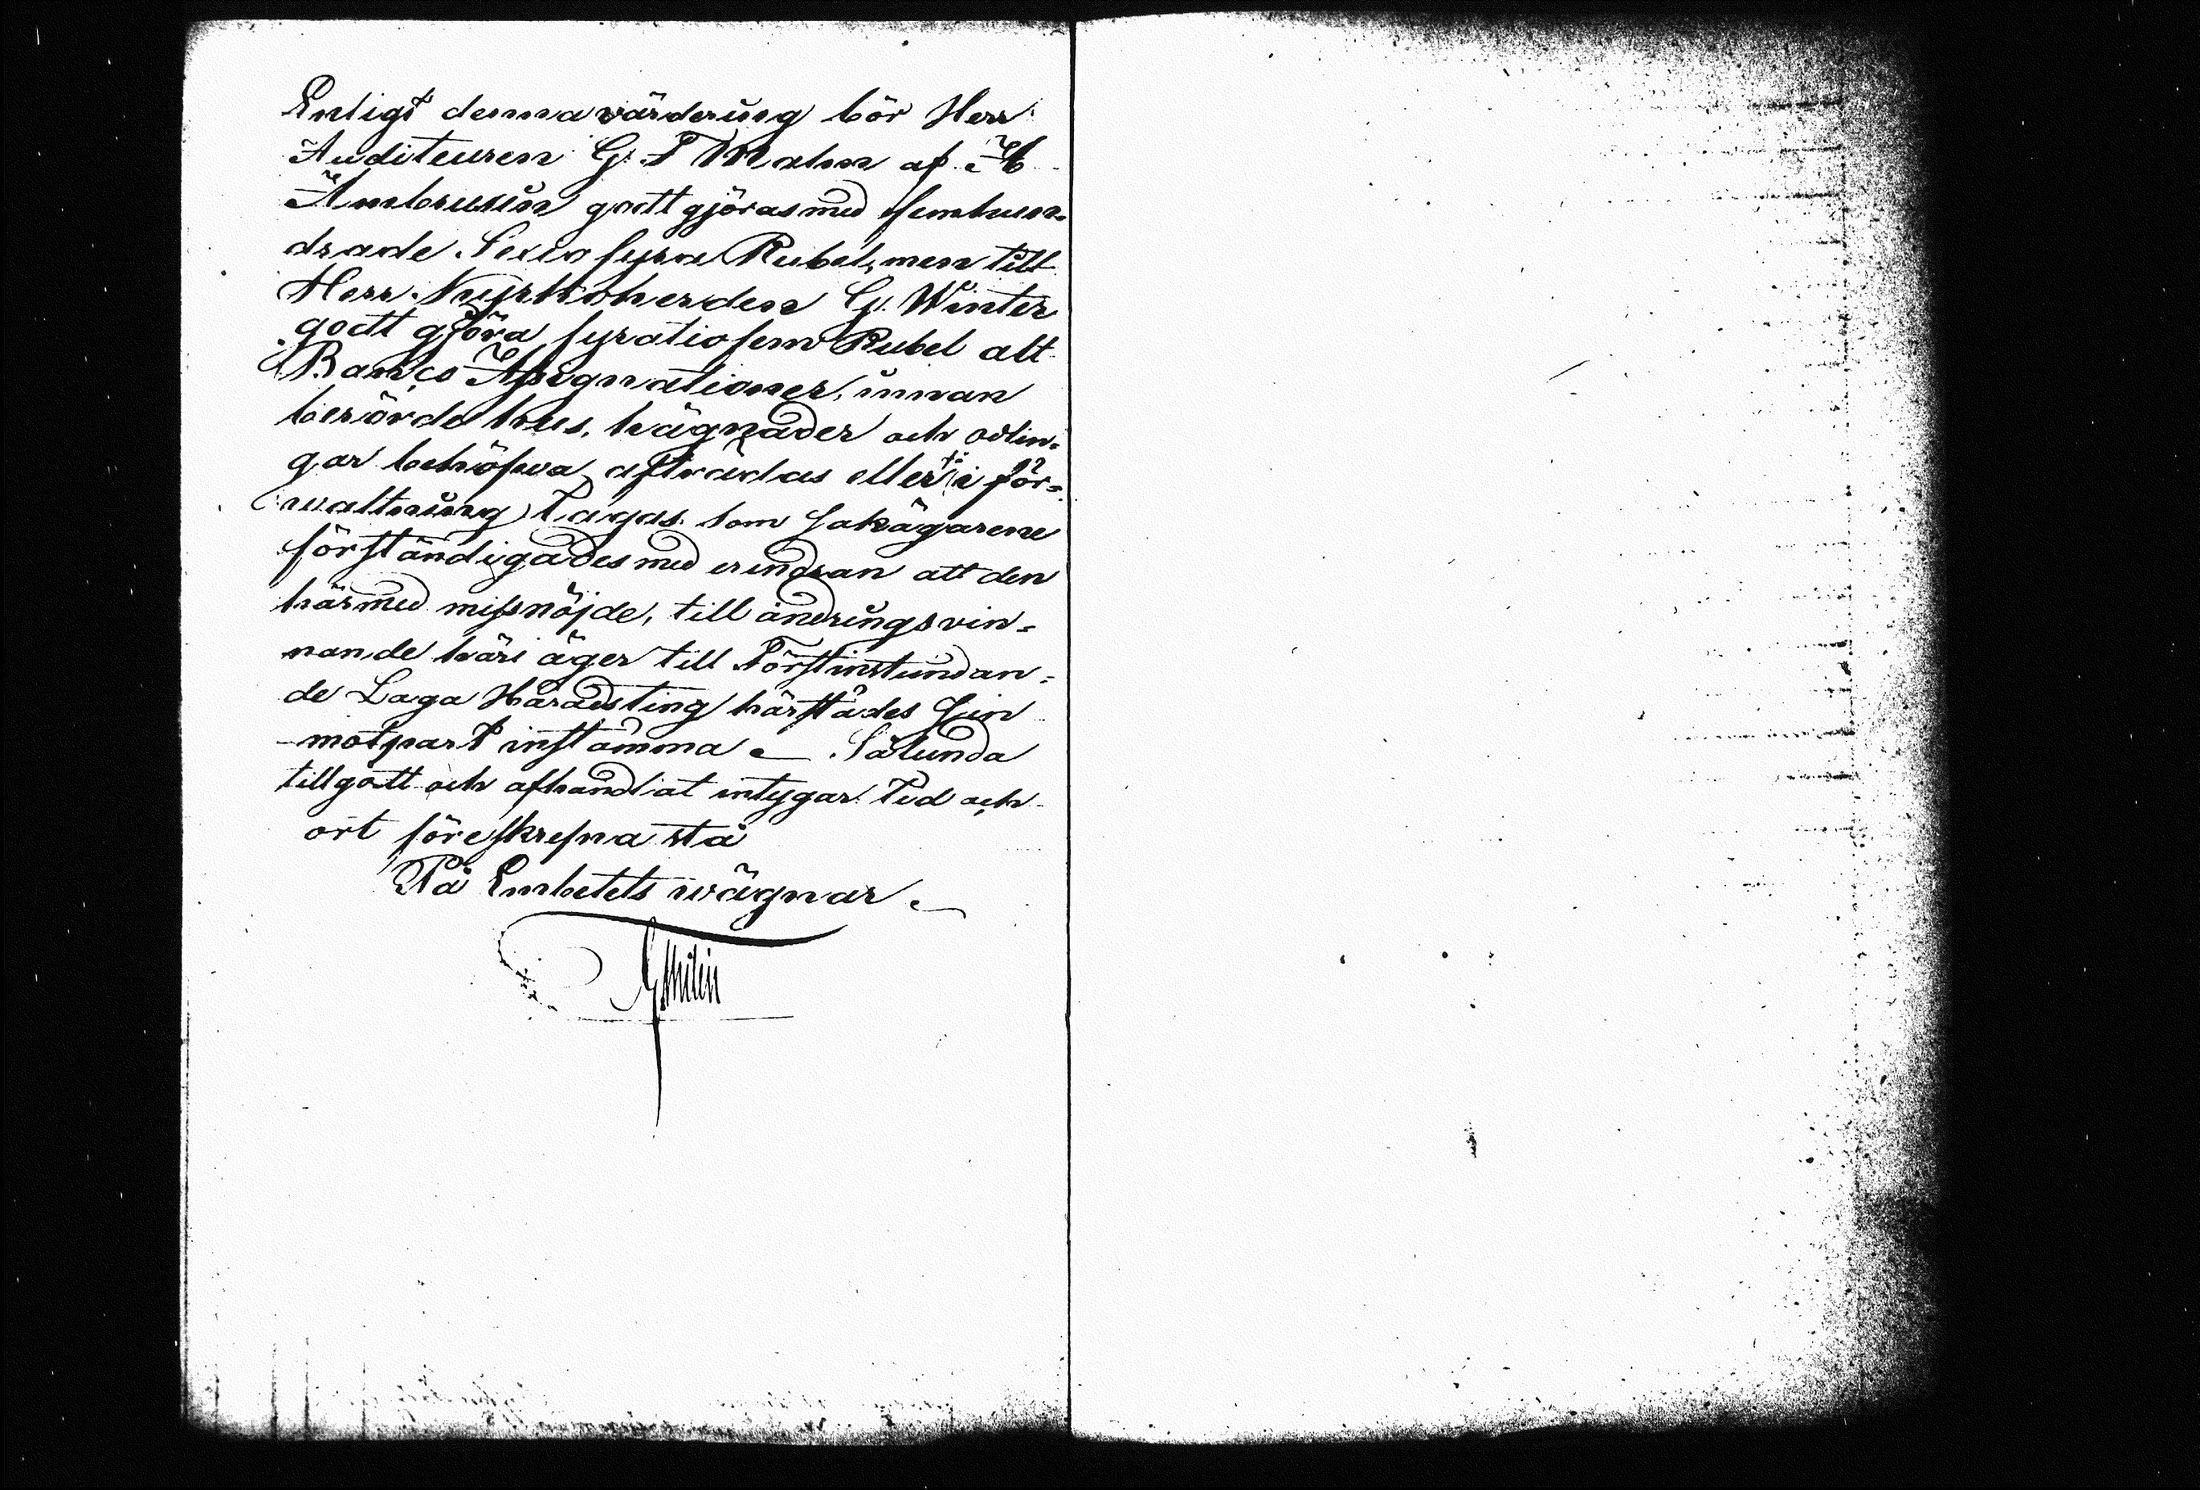 Enligt denna värdering bör Herr
Auditeuren G. F Malm af H
Ambrusin godtgjöras med femhun-
drade Sextio fyra Rubel, men till
Herr Nyrkoherden G. Winter
godt gjöra fyratiofem Rubel alt
Banco Assignationer, innan
berörde hus, hägnader och odlin-
gar behöfwa afträdas eller i för-
waltning tagas. Som Sakägarene
förständigades med erindran att den
härmed missnöjde, till ändrings vin-
nande häri äger till Förstinstundan-
de Laga Häradsting härstädes Sin
motpart instämma. Sålunda
tillgått och afhandlat intygar Tid och
ort föreskrefna stå
På Embetets wägnar